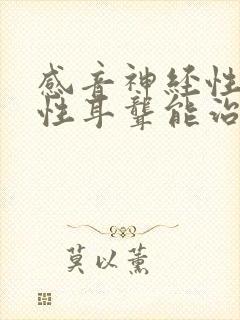 感音神经性
性耳聋能治
莫以薰